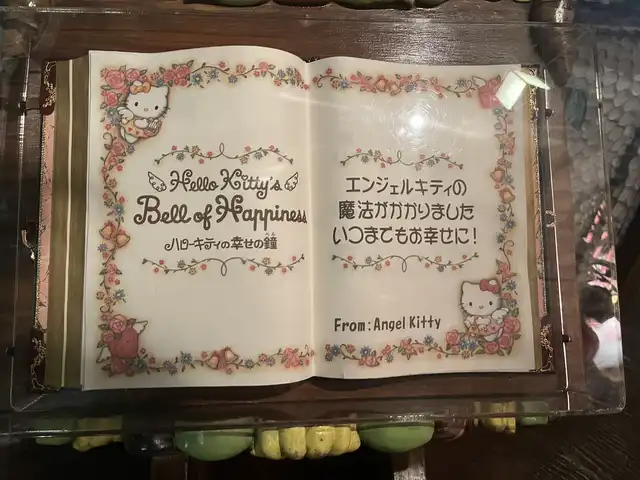 Hello Kitty's
Bell of Happiness
ハローキティの幸せの鐘
エンジェルキティの
魔法がかかりました
いつまでもお幸せに!
From: Angel Kitty